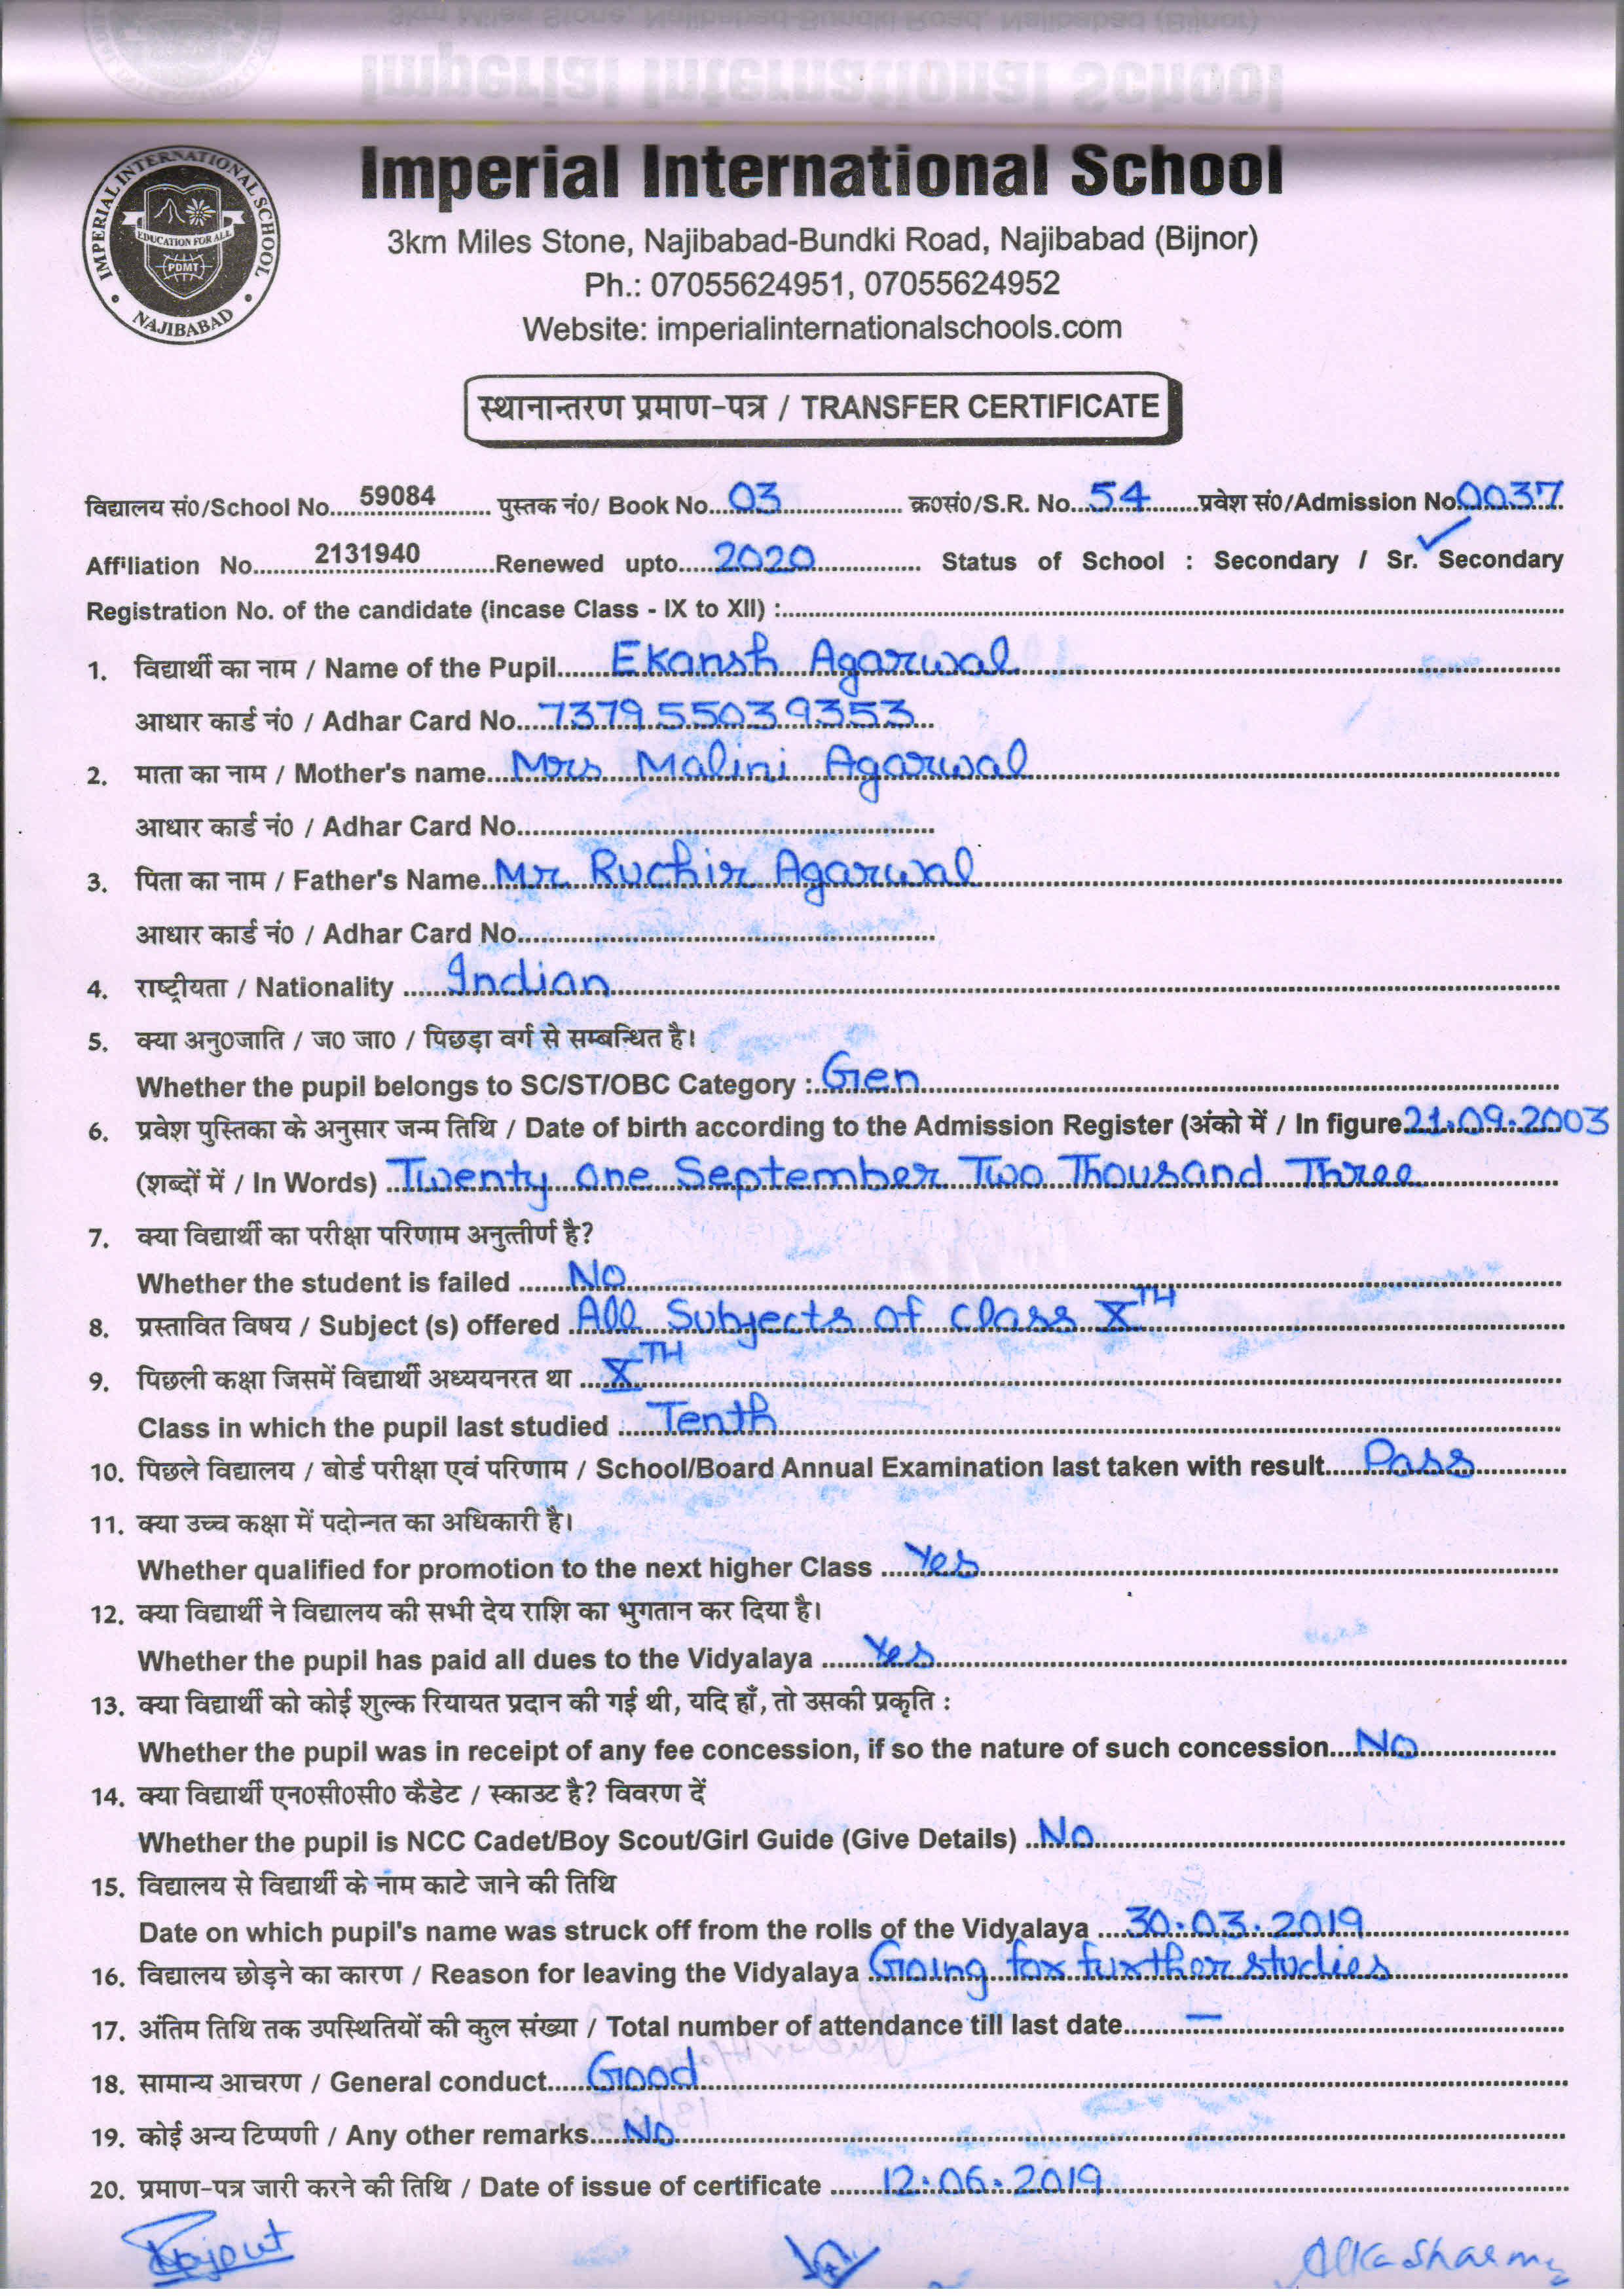 Imperial International School
IMPERIAL INTERNATIONAL SCHOOL
EDUCATION FOR ALL
PDMT
NAJIBABAD
3km Miles Stone, Najibabad-Bundki Road, Najibabad (Bijnor)
Ph.: 07055624951, 07055624952
Website: imperialinternationalschools.com
स्थानान्तरण प्रमाण-पत्र / TRANSFER CERTIFICATE
विद्यालय सं0/School No. 59084 पुस्तक नं0/ Book No. 03 क्र0सं0/S.R. No. 54 प्रवेश सं0/Admission No. 0037
Affiliation No. 2131940 Renewed upto 2020 Status of School : Secondary / Sr. Secondary
Registration No. of the candidate (incase Class - IX to XII) :
1. विद्यार्थी का नाम / Name of the Pupil Ekansh Agarwal
आधार कार्ड नं0 / Adhar Card No. 7379 5503 9353
2. माता का नाम / Mother's name Mrs Malini Agarwal
आधार कार्ड नं0 / Adhar Card No.
3. पिता का नाम / Father's Name Mr Ruchir Agarwal
आधार कार्ड नं0 / Adhar Card No.
4. राष्ट्रीयता / Nationality Indian
5. क्या अनु0जाति / ज0 जा0 / पिछड़ा वर्ग से सम्बन्धित है।
Whether the pupil belongs to SC/ST/OBC Category : Gen
6. प्रवेश पुस्तिका के अनुसार जन्म तिथि / Date of birth according to the Admission Register (अंको में / In figure 21.09.2003
(शब्दों में / In Words) Twenty one September Two Thousand Three
7. क्या विद्यार्थी का परीक्षा परिणाम अनुत्तीर्ण है?
Whether the student is failed NO
8. प्रस्तावित विषय / Subject (s) offered All Subjects of class XTH
9. पिछली कक्षा जिसमें विद्यार्थी अध्ययनरत था XTH
Class in which the pupil last studied Tenth
10. पिछले विद्यालय / बोर्ड परीक्षा एवं परिणाम / School/Board Annual Examination last taken with result Pass
11. क्या उच्च कक्षा में पदोन्नत का अधिकारी है।
Whether qualified for promotion to the next higher Class Yes
12. क्या विद्यार्थी ने विद्यालय की सभी देय राशि का भुगतान कर दिया है।
Whether the pupil has paid all dues to the Vidyalaya Yes
13. क्या विद्यार्थी को कोई शुल्क रियायत प्रदान की गई थी, यदि हाँ, तो उसकी प्रकृति :
Whether the pupil was in receipt of any fee concession, if so the nature of such concession NO
14. क्या विद्यार्थी एन0सी0सी0 कैडेट / स्काउट है? विवरण दें
Whether the pupil is NCC Cadet/Boy Scout/Girl Guide (Give Details) No
15. विद्यालय से विद्यार्थी के नाम काटे जाने की तिथि
Date on which pupil's name was struck off from the rolls of the Vidyalaya 30.03.2019
16. विद्यालय छोड़ने का कारण / Reason for leaving the Vidyalaya Going for further studies
17. अंतिम तिथि तक उपस्थितियों की कुल संख्या / Total number of attendance till last date —
18. सामान्य आचरण / General conduct Good
19. कोई अन्य टिप्पणी / Any other remarks No
20. प्रमाण-पत्र जारी करने की तिथि / Date of issue of certificate 12.06.2019
Alka Sharma